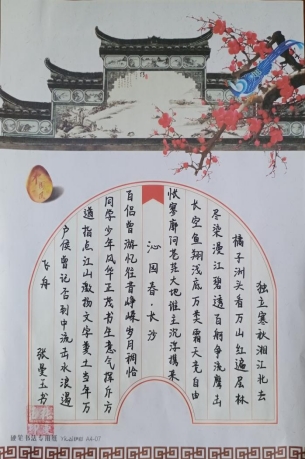 独立寒秋湘江北去
橘子洲头看万山红遍层林
尽染漫江碧透百舸争流鹰击
长空鱼翔浅底万类霜天竞自由
怅寥廓问苍茫大地谁主沉浮携来
沁园春·长沙
百侣曾游忆往昔峥嵘岁月稠恰
同学少年风华正茂书生意气挥斥方
遒指点江山激扬文字粪土当年万
户侯曾记否到中流击水浪遏
飞舟
张曼玉书
硬笔书法专用纸
A4-07